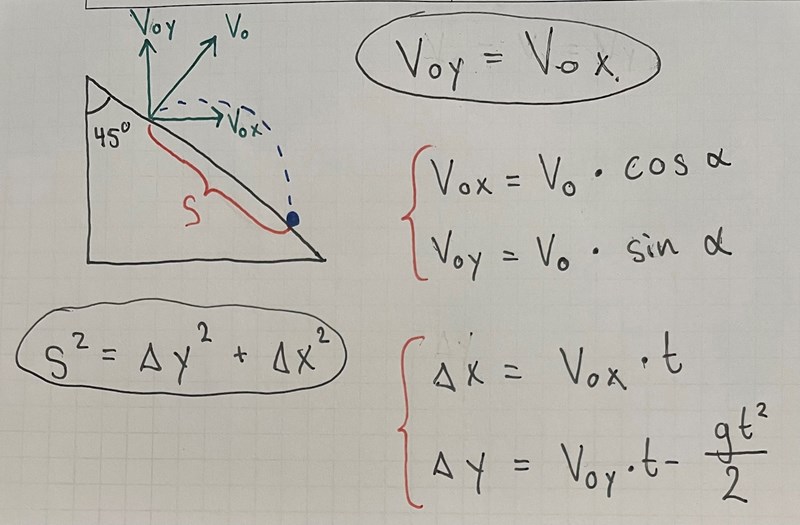 V₀y
V₀
V₀x
45°
S
V₀y = V₀x.
V₀x = V₀ · cos α
V₀y = V₀ · sin α
S² = Δy² + Δx²
Δx = V₀x · t
Δy = V₀y · t - gt²/2